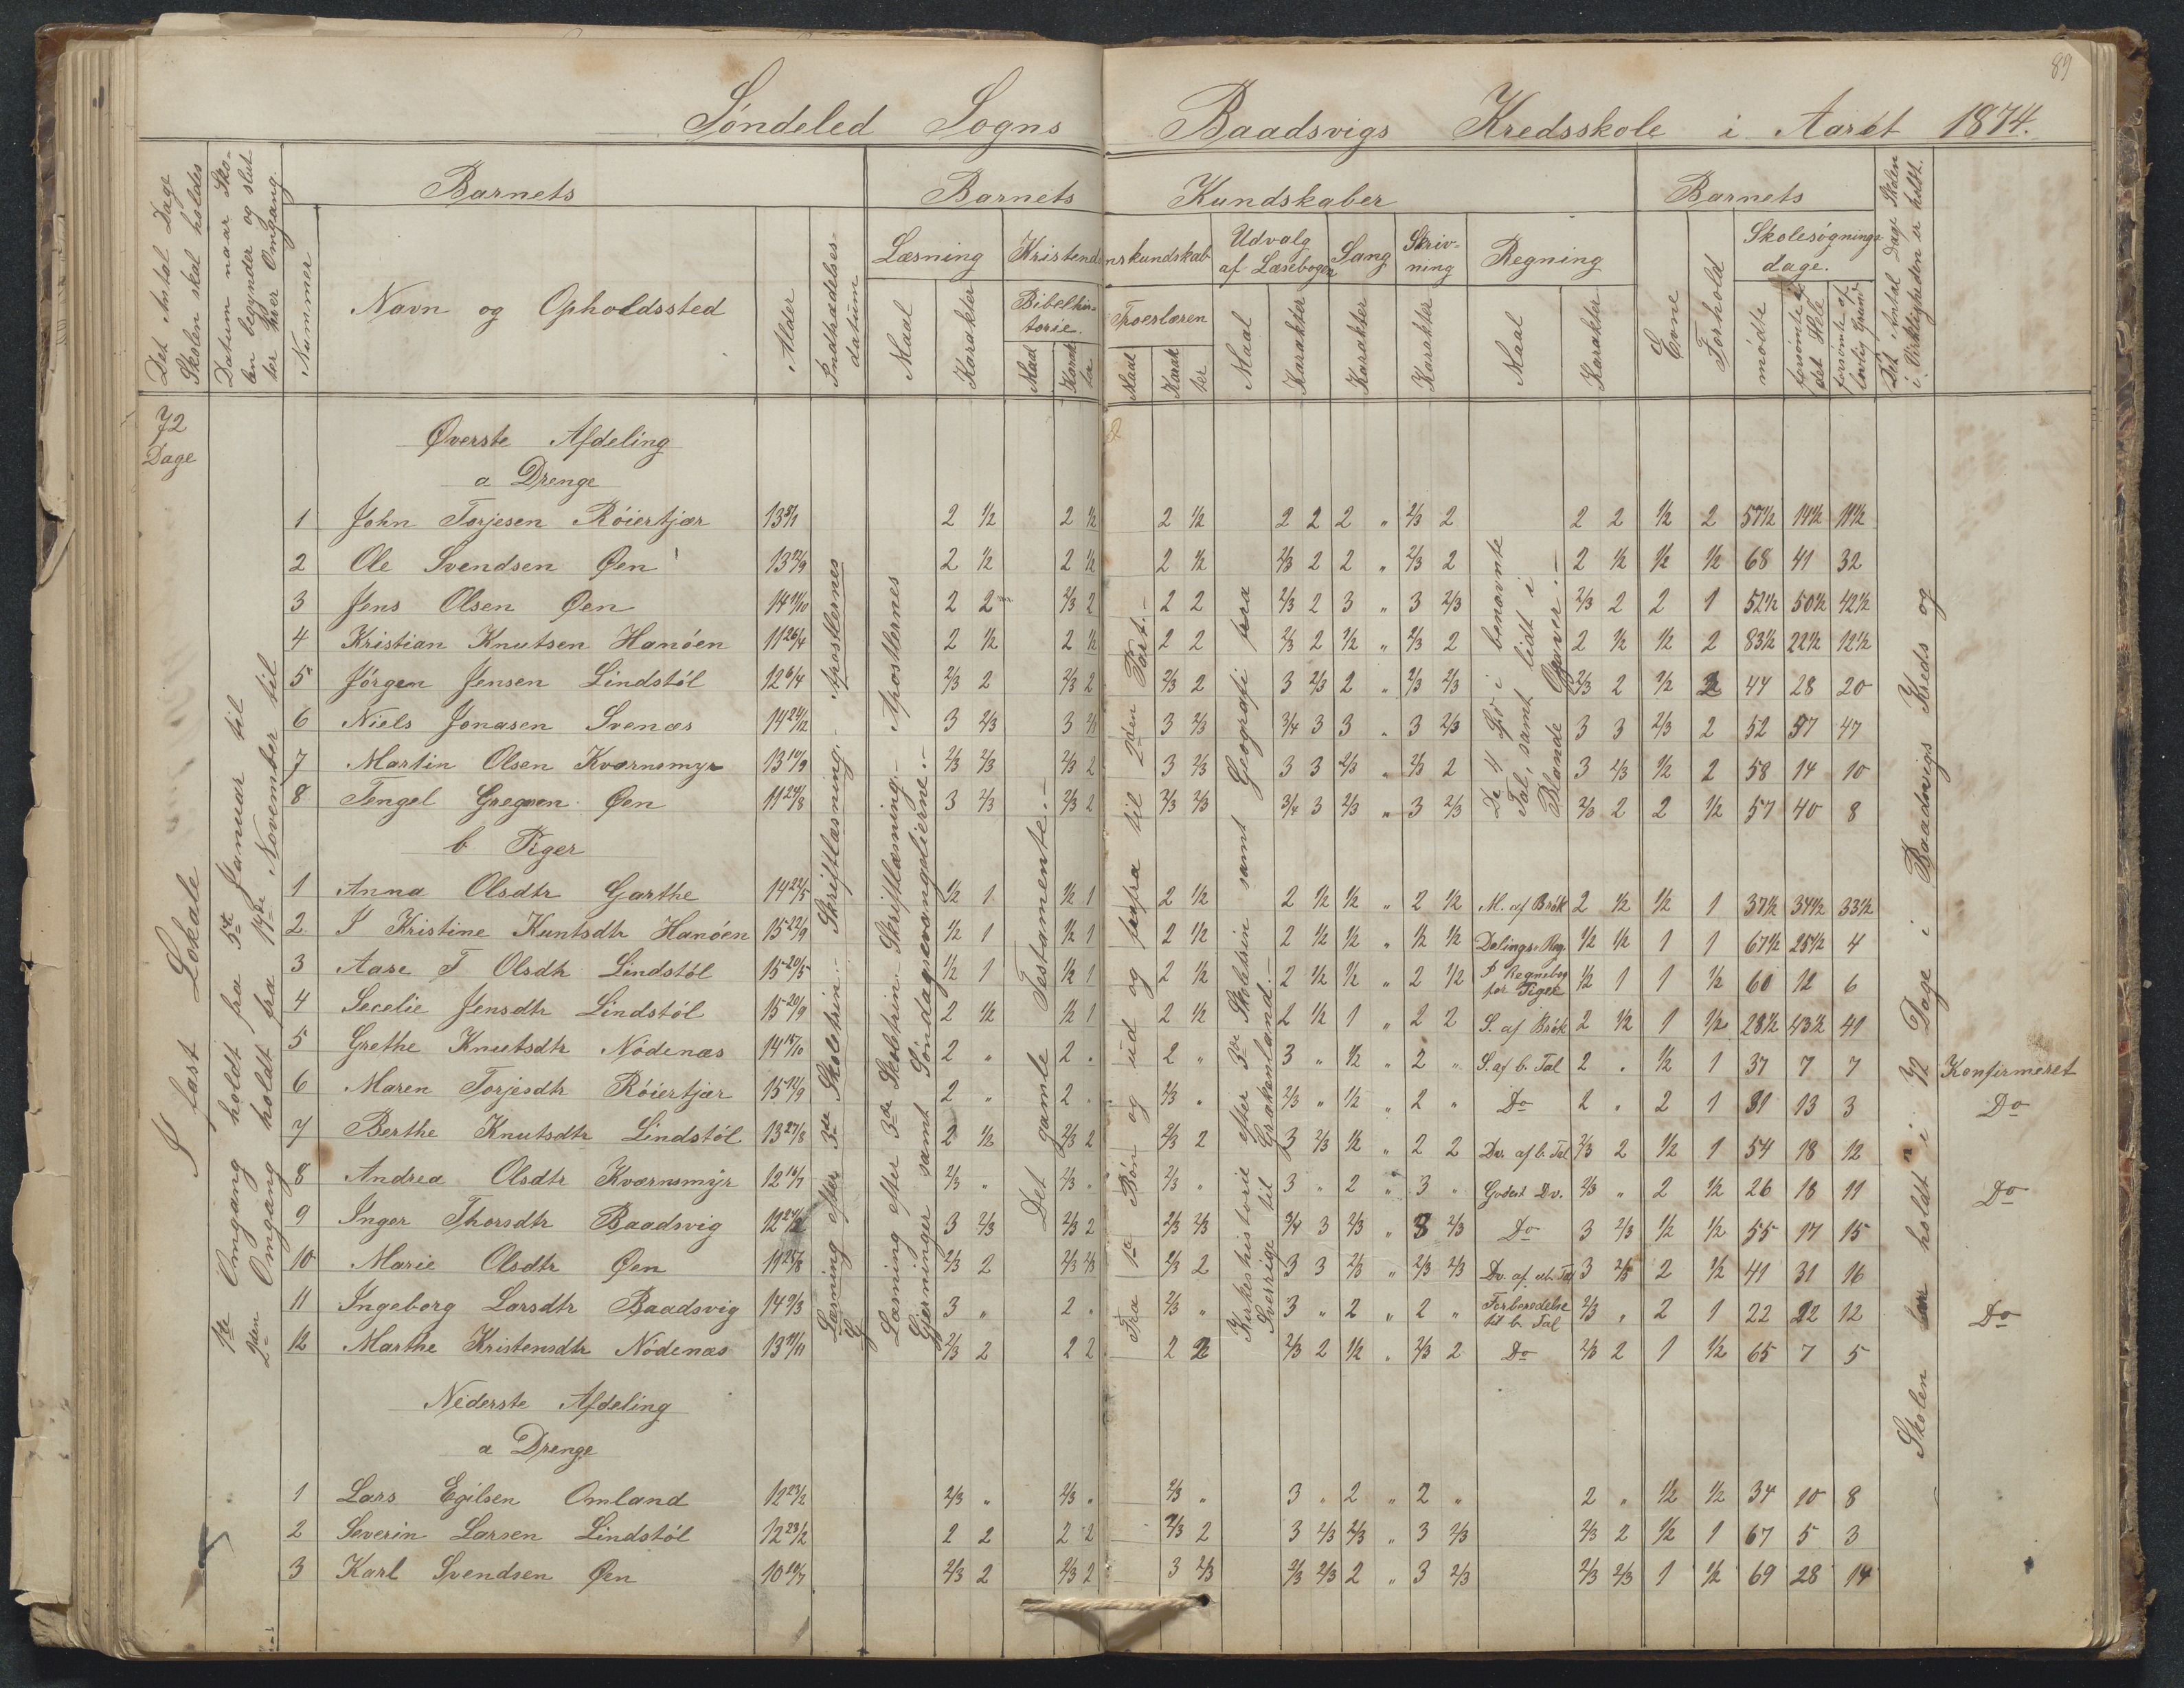 89
Søndeled Sogns Baadsvigs Kredsskole i Aaret 1874.
Det Antal Dage Skolen skal holdes
Datum naar Skolen begynder og slutter hver Omgang.
Barnets
Nummer
Navn og Opholdssted
Alder
Indtrædelsesdatum
Barnets Kundskaber
Læsning
Maal
Karakter
Kristendomskundskab
Bibelhistorie.
Maal
Karakter
Troeslæren
Maal
Karakter
Udvalg af Læsebogen
Maal
Karakter
Sang
Karakter
Skrivning
Karakter
Regning
Maal
Karakter
Barnets
Evne
Forhold
Skolesøgningsdage.
mødte
forsømte i det Hele
forsømte af lovlig Grund
Det Antal Dage Skolen i Virkeligheden er holdt.
72 Dage
I fast Lokale
1ste Omgang holdt fra 5te Januar til
2den Omgang holdt fra 14de November til
Læsning efter 3die Skoletrin. – Skriftlæsning. – Apostlernes G
Læsning efter 3die Skoletrin Skriftlæsning. – Apostlernes
Gjerninger samt Søndagsevangelierne. –
Det gamle Testamente. –
Fra 1ste Bøn og ud og forfra til 2den Part. –
Kirkehistorie efter 3die Skoletrin samt Geografi fra
Sverige til Grækenland. –
De 4 Sp. i benævnte
Tal, samt lidt i
Blande Opgaver. –
Skolen har holdt i 72 Dage i Baadsvigs Kreds og
Øverste Afdeling
a Drenge
1 John Torjesen Røiertjær 2 ½ 2 ½ 2 ½ 2 2 2 " 2/3 2 2 2 ½ 2 57½ 14½ 11½
2 Ole Svendsen Øen 13 2 ½ 2 ½ 2 ½ 2/3 2 2 " 2/3 2 2 ½ ½ ½ 68 41 32
3 Jens Olsen Øen 14 2 2 2/3 2 2 2 2/3 2 3 " 3 2/3 2/3 2 2 1 52½ 50½ 42½
4 Kristian Knutsen Hanøen 11 26/4 2 ½ 2 ½ 2 2 2/3 2 ½ " 2/3 2 2 ½ ½ 2 83½ 22½ 12½
5 Jørgen Jensen Lindstøl 12 6/4 2/3 2 2/3 2 2/3 2 3 2/3 2 " 2/3 2/3 2/3 2 ½ 2 44 28 20
6 Niels Jonasen Svenæs 14 24/12 3 2/3 3 2/3 3 2/3 3/4 3 3 " 3 2/3 3 3 2/3 2 52 57 47
7 Martin Olsen Kværnsmyr 13 2/3 2/3 2/3 2 3 2/3 3 3 2/3 " 2/3 2 3 2/3 ½ 2 58 14 10
8 Tengel Gregsen Øen 11 3 2/3 2/3 2 2/3 2/3 3/4 3 2/3 " 3 2/3 2/3 2 2 ½ 57 40 8
b Piger
1 Anna Olsdtr Garthe 14 22/5 ½ 1 ½ 1 2 ½ 2 ½ ½ " 2 ½ M. af Brøk 2 ½ ½ 1 37½ 34½ 33½
2 I Kristine Kuntsdtr Hanøen 15 22/9 ½ 1 ½ 1 2 ½ 2 ½ ½ " ½ ½ Delings Reg. ½ ½ 1 1 67½ 25½ 4
3 Aase T Olsdtr Lindstøl 15 20/5 ½ 1 ½ 1 2 ½ 2 ½ ½ " 2 ½ I Regnebog for Piger ½ 1 1 ½ 60 12 6
4 Secelie Jensdtr Lindstøl 15 20/9 2 ½ ½ 1 2 ½ 2 ½ 1 " 2 2 S. af Brøk 2 ½ 1 ½ 28½ 43½ 41
5 Grethe Knutsdtr Nødenæs 14 2 " 2 " 2 " 3 " ½ " 2 " S. af b. Tal 2 " ½ 1 37 7 7 Konfirmeret
6 Maren Torjesdtr Røiertjær 15 2 " 2 " 2/3 " 2/3 " ½ " 2 " Do 2 " 2 1 81 13 3 Do
7 Berthe Knutsdtr Lindstøl 13 27/8 2 ½ 2/3 2 2/3 2 3 2/3 ½ " 2 2 Dv. af b. Tal 2/3 2 ½ 1 54 18 12
8 Andrea Olsdtr Kværnsmyr 12 14/7 2/3 " 2/3 " 2/3 " 3 " 2 " 3 " Godert Dv. 2/3 " 2 ½ 26 18 11 Do
9 Inger Thorsdtr Baadsvig 12 3 2/3 2/3 2 2/3 2/3 3/4 3 2/3 " 3 2/3 Do 3 2/3 ½ ½ 55 17 15
10 Marie Olsdtr Øen 11 25/8 2/3 2 2/3 2/3 2/3 2 3 3 2/3 " 2/3 2/3 Dv. af ub. Tal 3 2/3 2 ½ 41 31 16
11 Ingeborg Larsdtr Baadsvig 14 9/3 3 " 2 " 2/3 " 3 " 2 " 2 " Forberedelse til b. Tal 2/3 " 2 1 22 22 12 Do
12 Marthe Kristensdtr Nødenæs 13 2/3 2 2 2 2 2 2/3 2 ½ " 2/3 2 Do 2/3 2 1 ½ 65 7 5
Nederste Afdeling
a Drenge
1 Lars Egilsen Omland 12 23/2 2/3 " 2/3 " 2/3 " 3 " 2 " 2 " 2 " ½ ½ 34 10 8
2 Severin Larsen Lindstøl 12 23/2 2 2 2 2 2/3 2 3 2/3 2/3 " 3 2/3 2/3 2 ½ 1 67 5 3
3 Karl Svendsen Øen 10 2/3 2 2/3 2 3 2/3 2/3 2/3 2 " 3 2/3 2/3 2/3 1 ½ 69 28 14